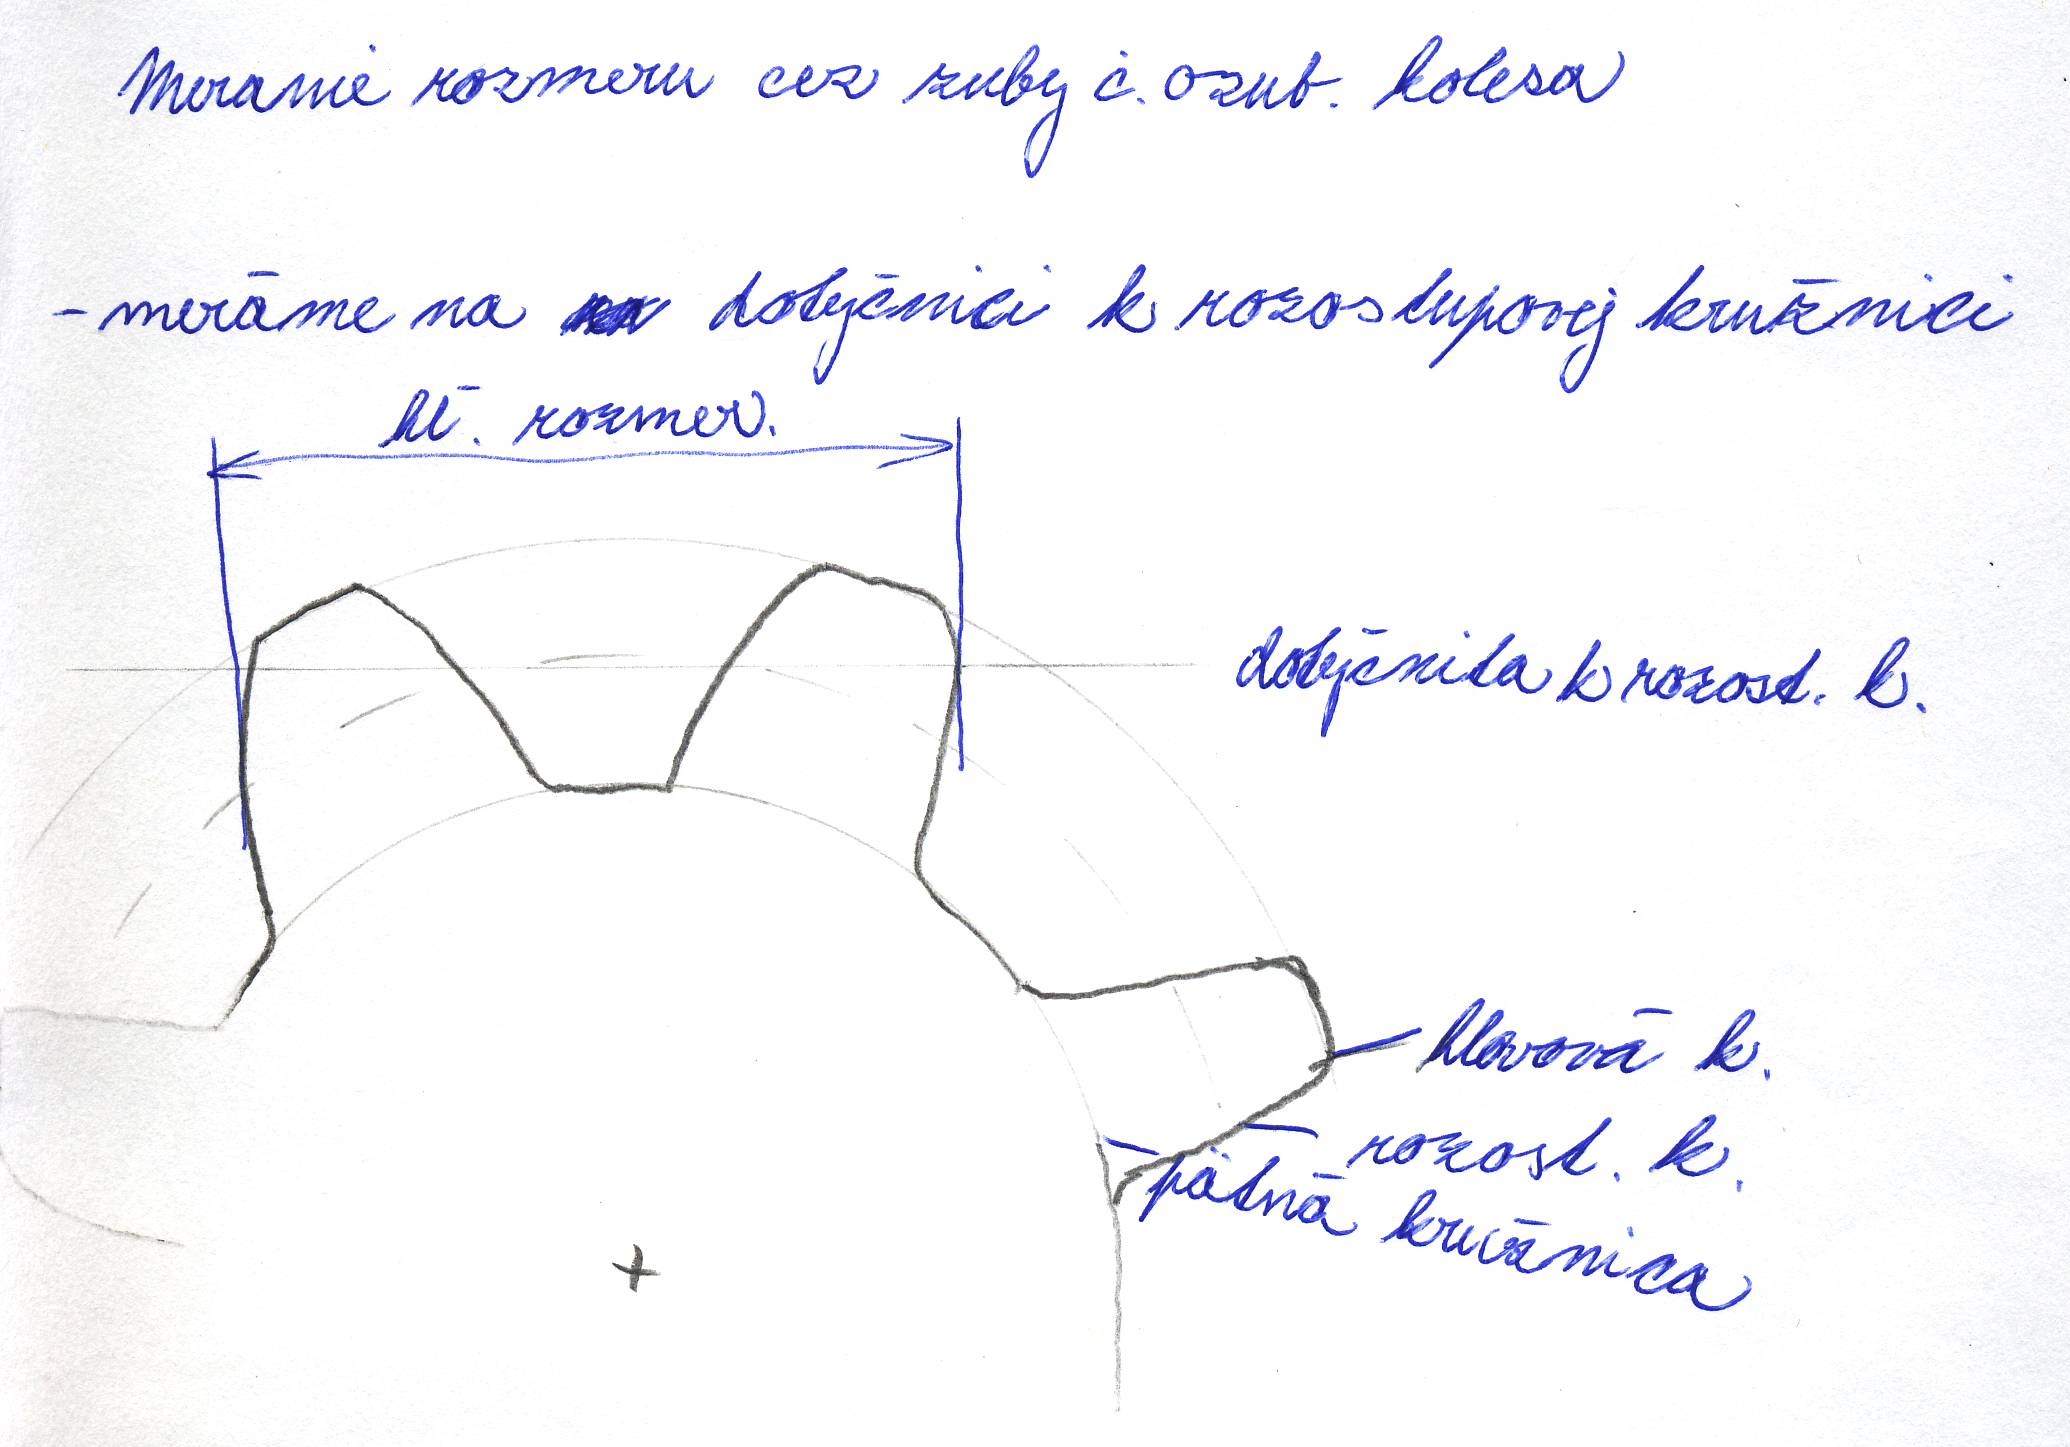 Meranie rozmeru cez zuby č. ozub. kolesa
- meráme na dotyčnici k rozostupovej kružnici
hl. rozmer.
dotyčnica k rozost. k.
hlavová k.
rozost. k.
pätná kružnica